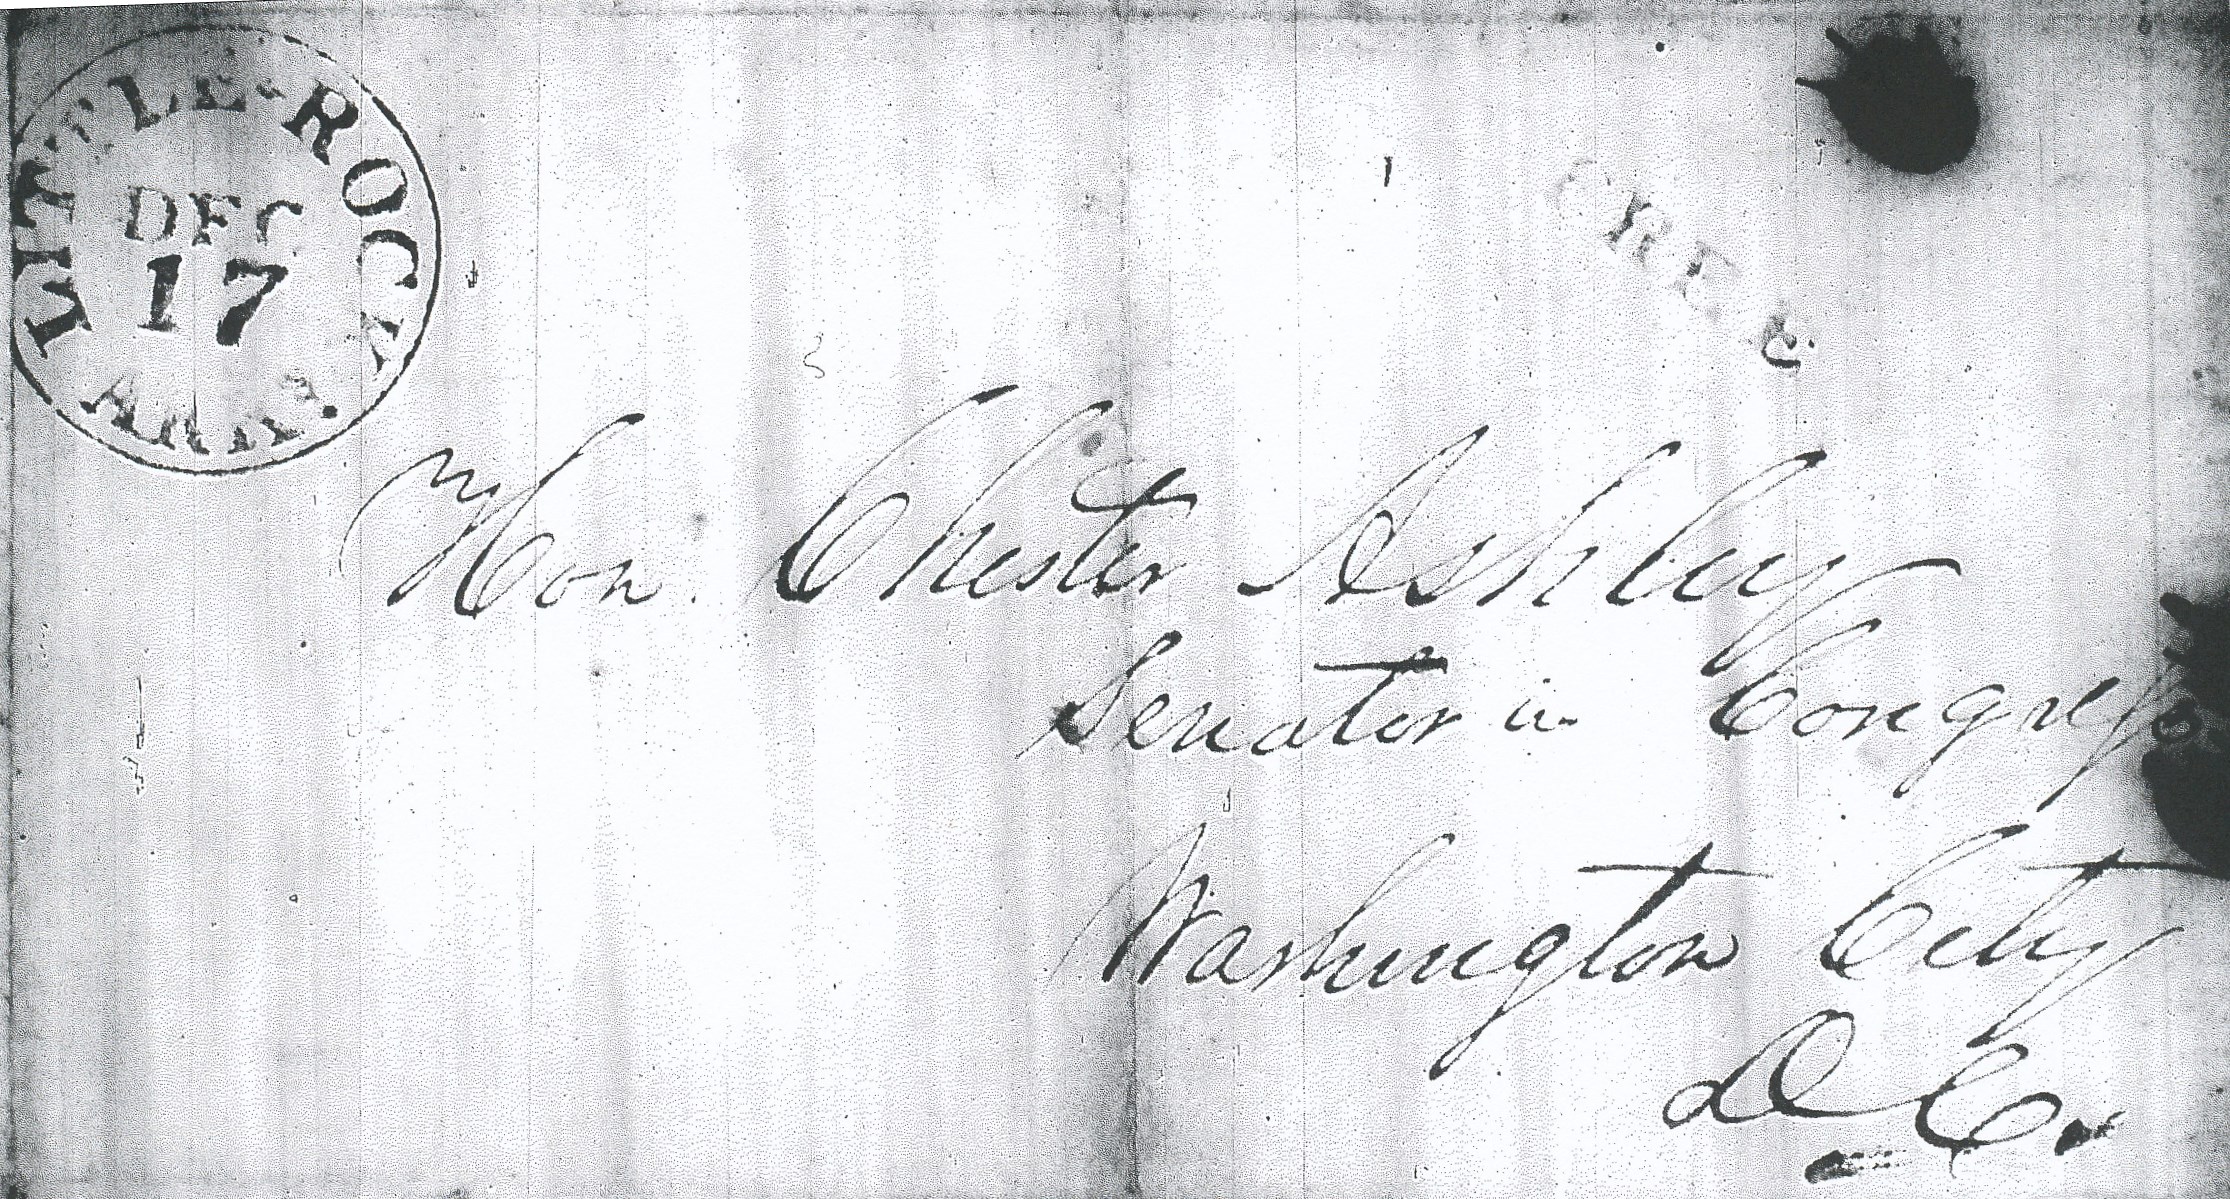 LITTLE·ROCK
ARK.
DEC
17
FREE
Hon. Chester Ashley
Senator in Congress
Washington City
D C.